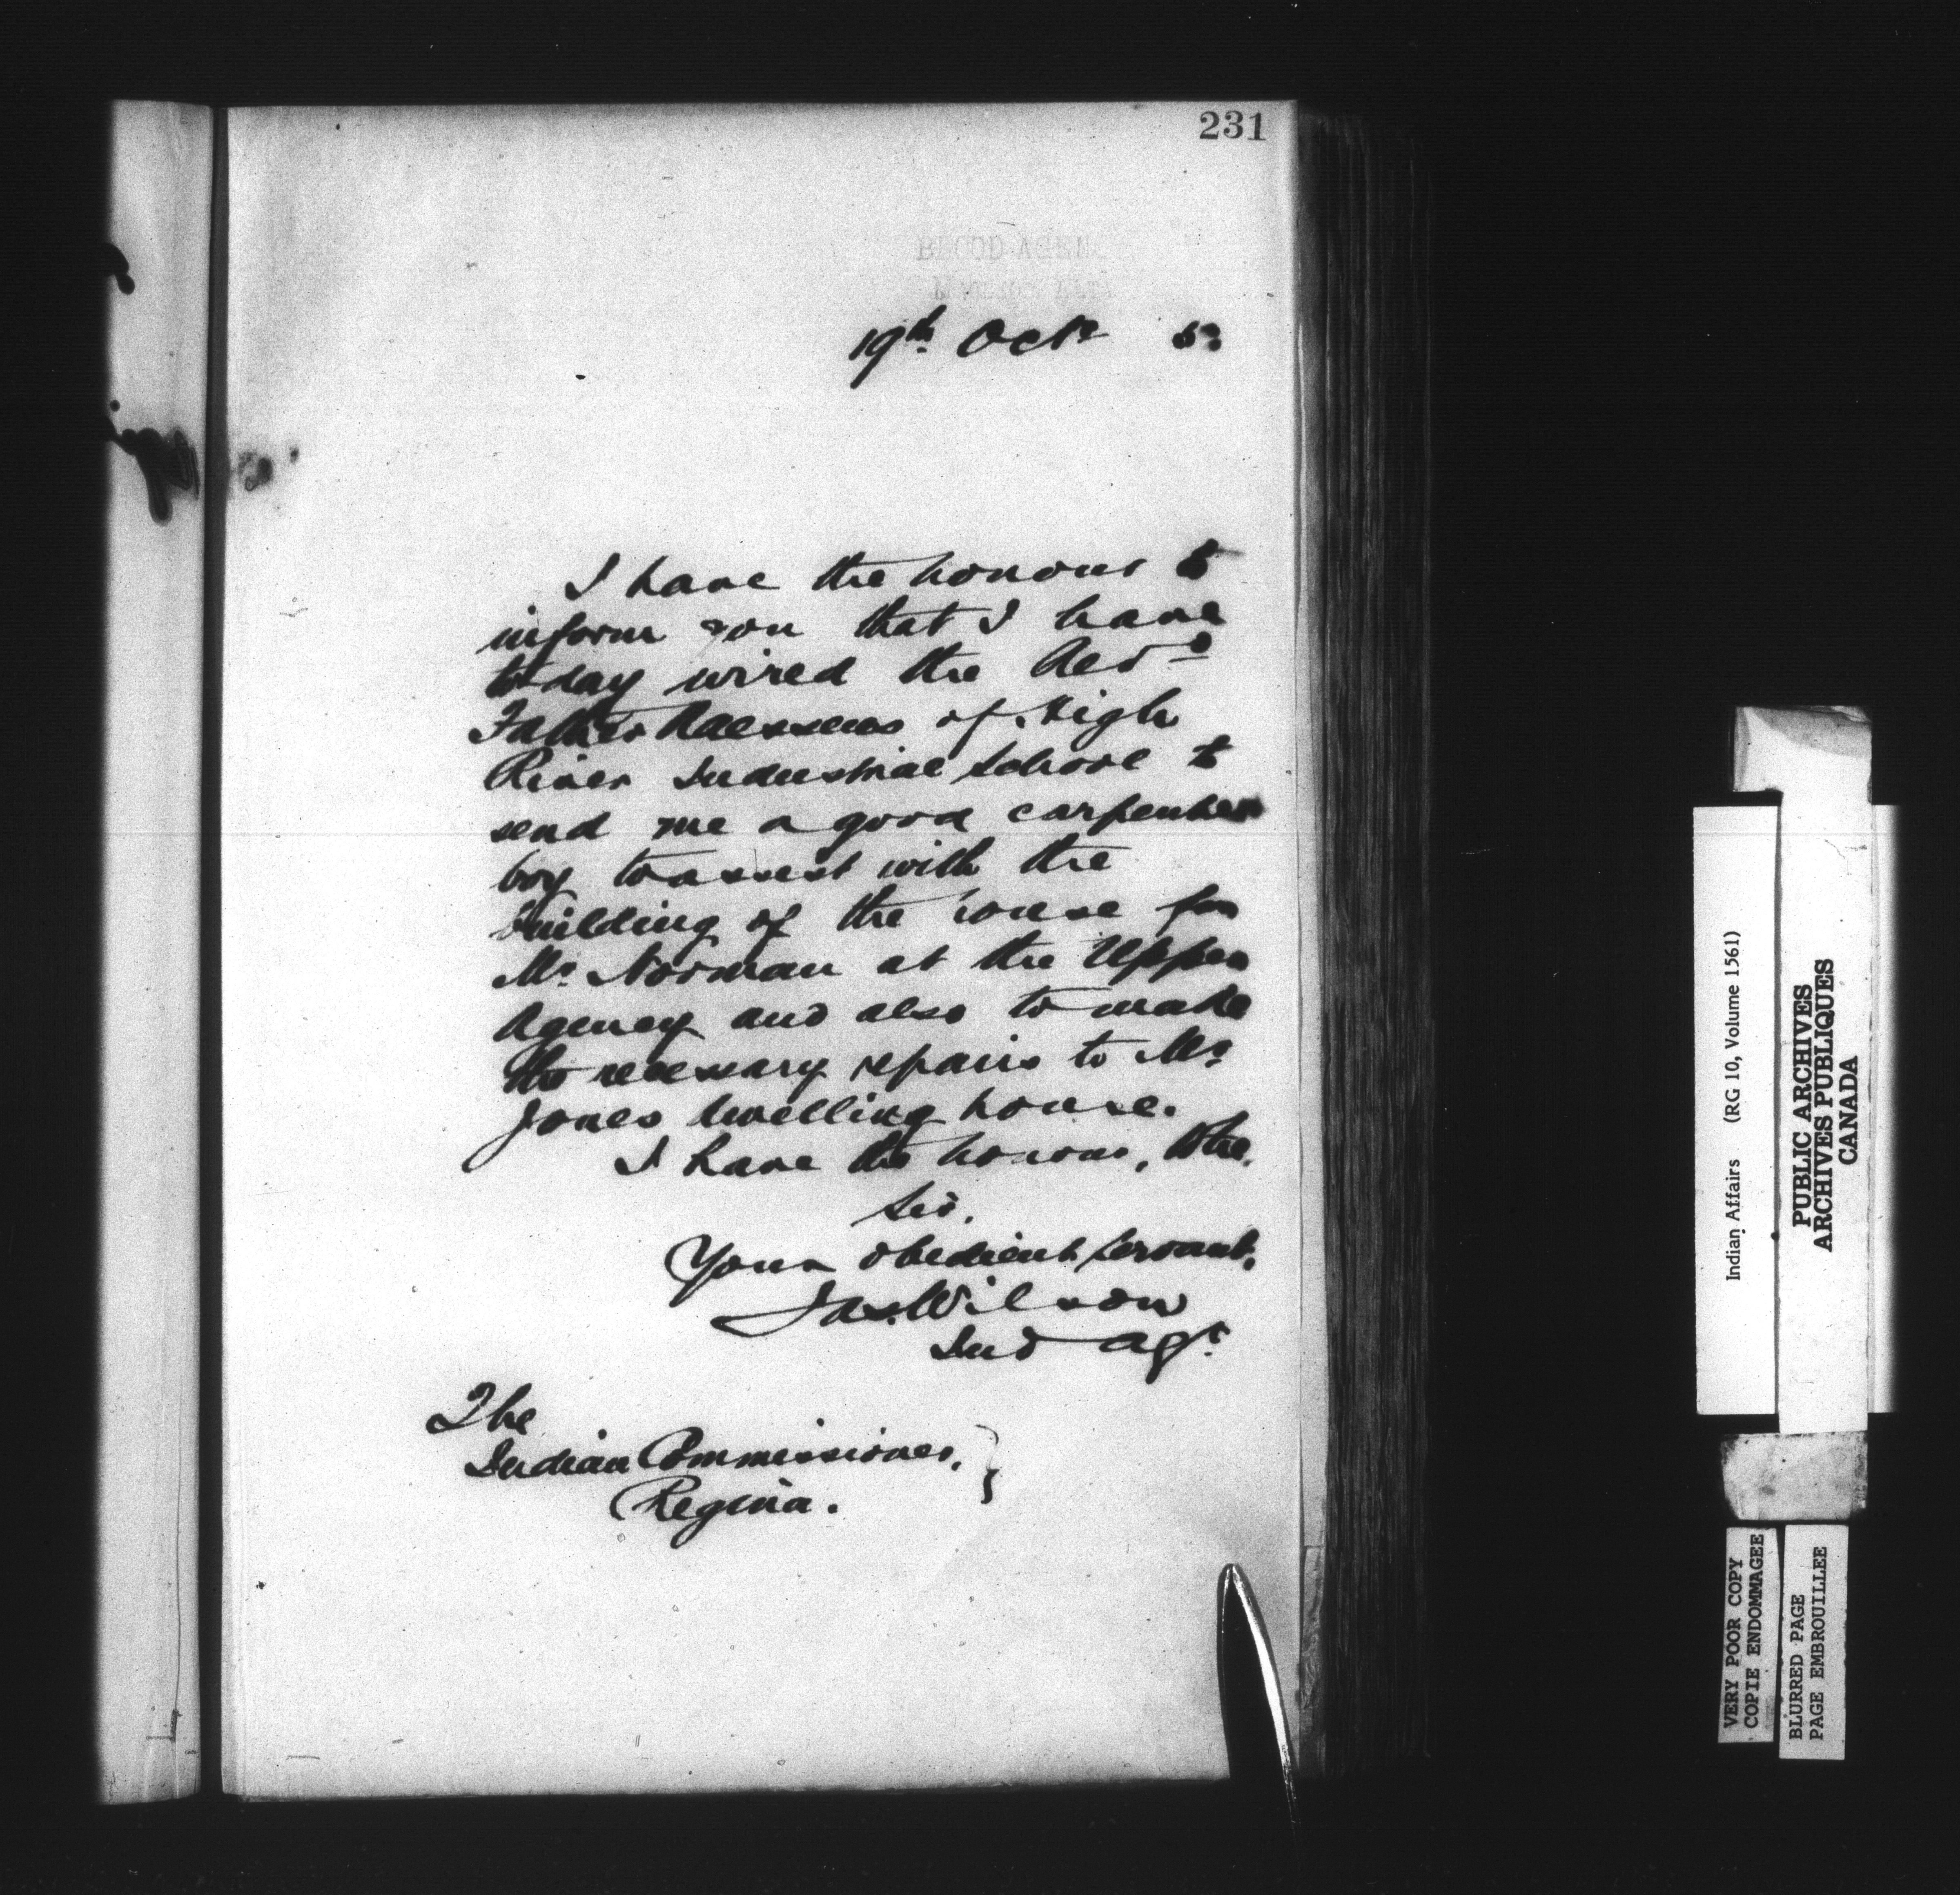 231
BLOOD AGEN
19th. Octr 5
I have the honour to
inform you that I have
today wired the Revd
Father Naessens of High
River Industrial School to
send me a good carpenter
boy to assist with the
building of the house for
Mr. Norman at the Upper
Agency and also to make
the necessary repairs to Mr
Jones dwelling house.
I have the honour, to be,
Sir,
Your obedient servant,
Jas. Wilson
Ind Agt.
The
Indian Commissioner,
Regina.
Indian Affairs (RG 10, Volume 1561)
PUBLIC ARCHIVES
ARCHIVES PUBLIQUES
CANADA
VERY POOR COPY
COPIE ENDOMMAGEE
BLURRED PAGE
PAGE EMBROUILLEE